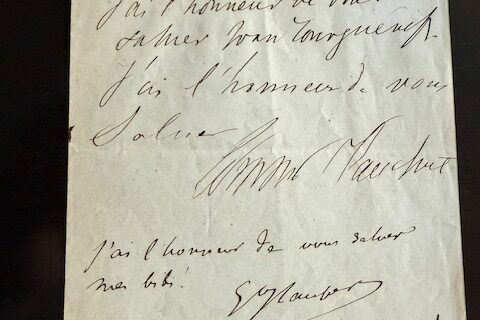 J'ai l'honneur de vous
saluer Ivan Tourguéneff.
J'ai l'honneur de vous
Saluer
j'ai l'honneur de vous saluer
mes bibi!
Gve Flaubert